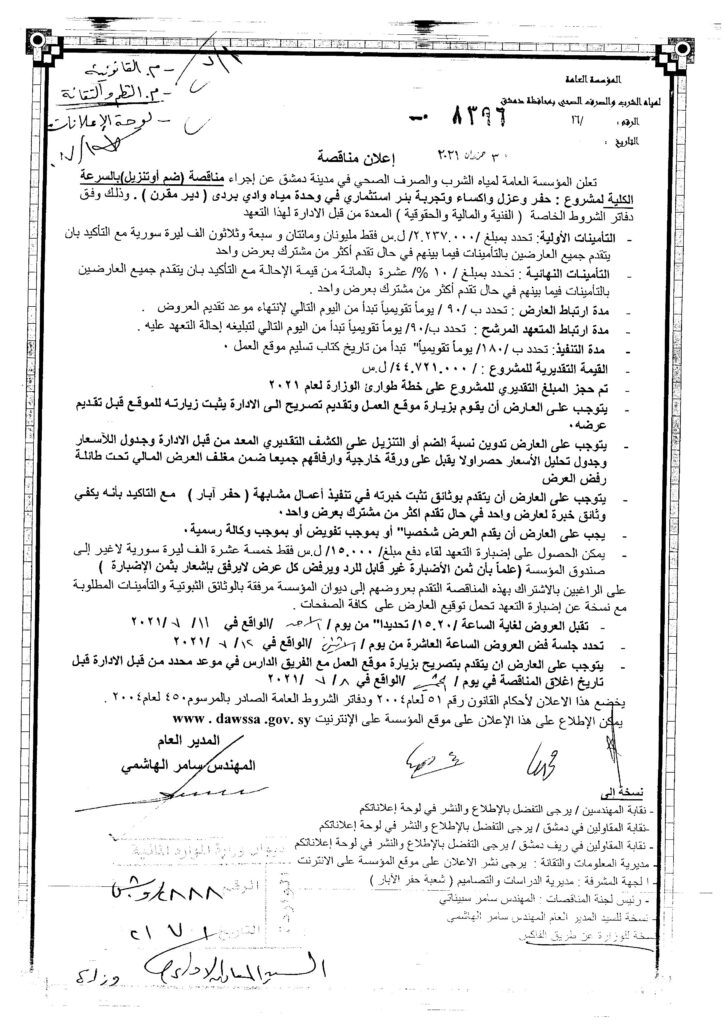 م. القانونية
م. النظم والتقانة
لوحة الإعلانات
المؤسسة العامة
لمياه الشرب والصرف الصحي بمحافظة دمشق
الرقم : ٨٣٩٦ /٢٦
التاريخ : ٣٠ حزيران ٢٠٢١
إعلان مناقصة
تعلن المؤسسة العامة لمياه الشرب والصرف الصحي في مدينة دمشق عن إجراء مناقصة (ضم أوتنزيل)بالسرعة
الكلية لمشروع : حفر وعزل واكساء وتجربة بئر استثماري في وحدة مياه وادي بردى ( دير مقرن ) . وذلك وفق
دفاتر الشروط الخاصة ( الفنية والمالية والحقوقية ) المعدة من قبل الادارة لهذا التعهد
- التأمينات الأولية: تحدد بمبلغ /٢.٢٣٧.٠٠٠/ ل.س فقط مليونان ومائتان و سبعة وثلاثون الف ليرة سورية مع التأكيد بان
يتقدم جميع العارضين بالتأمينات فيما بينهم في حال تقدم أكثر من مشترك بعرض واحد
- التأمينات النهائية : تحدد بمبلغ / ١٠ %/ عشرة بالمائة من قيمة الإحالة مع التأكيد بان يتقدم جميع العارضين
بالتأمينات فيما بينهم في حال تقدم أكثر من مشترك بعرض واحد .
- مدة ارتباط العارض : تحدد ب /٩٠ / يوماً تقويمياً تبدأ من اليوم التالي لإنتهاء موعد تقديم العروض .
- مدة ارتباط المتعهد المرشح : تحدد ب/٩٠/ يوماً تقويمياً تبدأ من اليوم التالي لتبليغه إحالة التعهد عليه .
- مدة التنفيذ: تحدد ب /١٨٠/ يوماً تقويمياً" تبدأ من تاريخ كتاب تسليم موقع العمل ٠
- القيمة التقديرية للمشروع : /٤٤.٧٢١.٠٠٠/ ل.س
- تم حجز المبلغ التقديري للمشروع على خطة طوارئ الوزارة لعام ٢٠٢١
- يتوجب على العارض أن يقوم بزيارة موقع العمل وتقديم تصريح الى الادارة يثبت زيارته للموقع قبل تقديم
عرضه٠
- يتوجب على العارض تدوين نسبة الضم أو التنزيل على الكشف التقديري المعد من قبل الادارة وجدول اللأسعار
وجدول تحليل الأسعار حصراولا يقبل على ورقة خارجية وارفاقهم جميعا ضمن مغلف العرض المالي تحت طائلة
رفض العرض
- يتوجب على العارض أن يتقدم بوثائق تثبت خبرته في تنفيذ أعمال مشابهة ( حفر آبار ) مع التاكيد بأنه يكفي
وثائق خبرة لعارض واحد في حال تقدم اكثر من مشترك بعرض واحد٠
- يجب على العارض أن يقدم العرض شخصيا" أو بموجب تفويض أو بموجب وكالة رسمية٠
- يمكن الحصول على إضبارة التعهد لقاء دفع مبلغ/ ١٥.٠٠٠/ ل.س فقط خمسة عشرة الف ليرة سورية لاغير إلى
صندوق المؤسسة (علماً بأن ثمن الأضبارة غير قابل للرد ويرفض كل عرض لايرفق بإشعار بثمن الإضبارة )
على الراغبين بالاشتراك بهذه المناقصة التقدم بعروضهم إلى ديوان المؤسسة مرفقة بالوثائق الثبوتية والتأمينات المطلوبة
مع نسخة عن إضبارة التعهد تحمل توقيع العارض على كافة الصفحات .
- تقبل العروض لغاية الساعة /١٥.٢٠/ تحديدا" من يوم / الاحد /الواقع في ١١ / ٧ /٢٠٢١
- تحدد جلسة فض العروض الساعة العاشرة من يوم / الاثنين /الواقع في ١٢ / ٧ /٢٠٢١
- يتوجب على العارض ان يتقدم بتصريح بزيارة موقع العمل مع الفريق الدارس في موعد محدد من قبل الادارة قبل
تاريخ اغلاق المناقصة في يوم / الخميس /الواقع في ٨ / ٧ /٢٠٢١
يخضع هذا الاعلان لأحكام القانون رقم ٥١ لعام٢٠٠٤ ودفاتر الشروط العامة الصادر بالمرسوم ٤٥٠ لعام٢٠٠٤ .
يمكن الإطلاع على هذا الإعلان على موقع المؤسسة على الإنترنيت www . dawssa .gov. sy
المدير العام
المهندس سامر الهاشمي
نسخة إلى
- نقابة المهندسين / يرجى التفضل بالإطلاع والنشر في لوحة إعلاناتكم
-نقابة المقاولين في دمشق / يرجى التفضل بالإطلاع والنشر في لوحة إعلاناتكم
- نقابة المقاولين في ريف دمشق / يرجى التفضل بالإطلاع والنشر في لوحة إعلاناتكم
- مديرية المعلومات والتقانة : يرجى نشر الاعلان على موقع المؤسسة على الانترنت
- ا لجهة المشرفة : مديرية الدراسات والتصاميم ( شعبة حفر الآبار )
- رئيس لجنة المناقصات : المهندس سامر سبيناتي
- نسخة للسيد المدير العام المهندس سامر الهاشمي
نسخة للوزارة عن طريق الفاكس
ديوان وزارة الموارد المائية
الواردة
الرقم ٤٨٨٨
التاريخ ١ / ٧ / ٢١